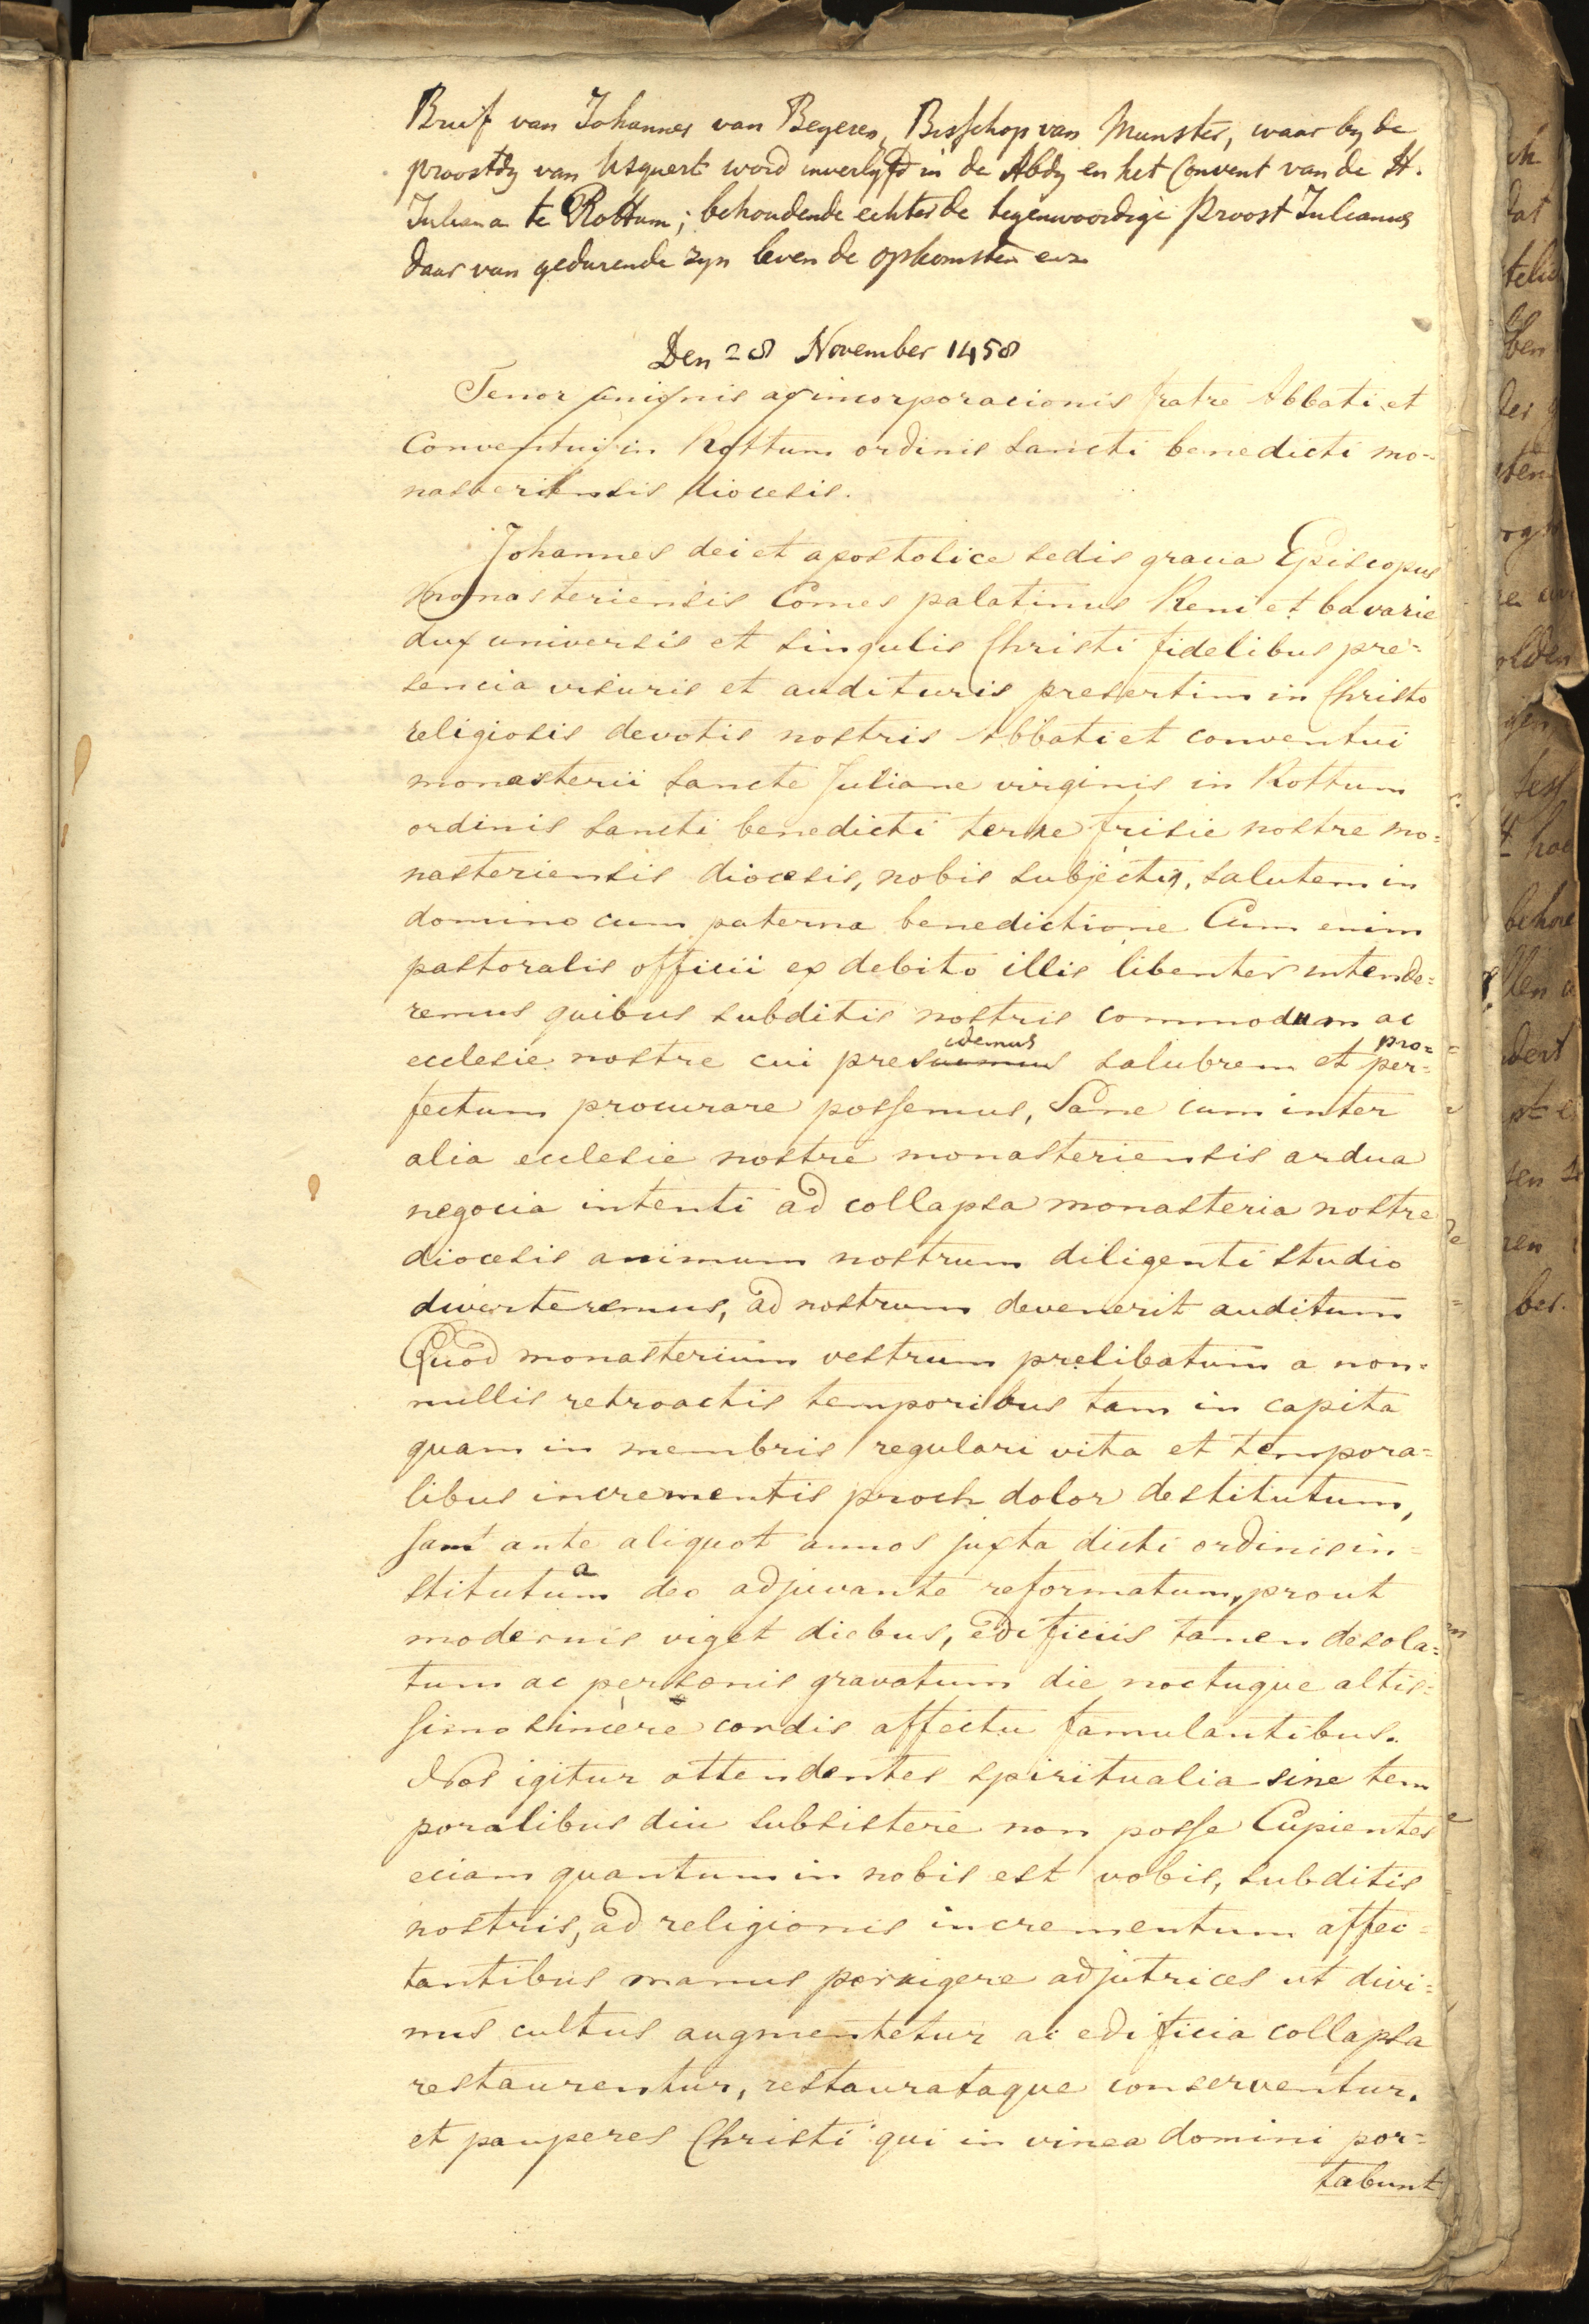 Brief van Johannes van Beyeren, Bisschop van Munster, waar by de
proostdy van Usquert word inverlyfd in de Abdy en het Convent van de H.
Juliana te Rottum; behoudende echter de tegenwoordige Proost Julianus
daar van gedurende zyn leven de opkomsten enz
Den 28 November 1458
Tenor unionis ac incorporacionis fratre Abbati et
Conventui in Rottum ordinis sancti benedicti mo-
nasteriensis diocesis.
Johannes dei et apostolice sedis gracia Episcopus
monasteriensis Comes palatinus Reni et bavarie
dux universis et singulis Christi fidelibus pre=
sencia visuris et audituris presertim in Christo
religiosis devotis nostris Abbati et conventui
monasterii sancte Juliane virginis in Rottum
ordinis sancti benedicti terre frisie nostre mo=
nasteriensis diocesis, nobis subjectis, salutem in
domino cum paterna benedictione Cum enim
pastoralis officii ex debito illis libenter intende=
remus quibus subditis nostris commodum ac
ecclesie nostre cui presidemus salubrem et pro=
fectum procurare possemus, Sane cum inter
alia ecclesie nostre monasteriensis ardua
negocia intenti ad collapsa monasteria nostre
diocesis animum nostrum diligenti studio
diverteremus, ad nostrum devenerit auditum
Quod monasterium vestrum prelibatum a non=
nullis retroactis temporibus tam in capita
quam in membris regulari vita et tempora=
libus incrementis proch dolor destitutum,
Jam ante aliquot annos juxta dicti ordinis in=
stituta deo adjuvante reformatum, prout
modernis viget diebus, edificiis tamen desola=
tum ac personis gravatum die noctuque altis=
simo sincere cordis affectu famulantibus.
Nos igitur attendentes spiritualia sine tem
poralibus diu subsistere non posse Cupientes
eciam quantum in nobis est vobis, subditis
nostris, ad religionis incrementum affec=
tantibus manus porrigere adjutrices ut divi=
nus cultus augmentetur ac edificia collapsa
restaurentur, restaurataque conserventur.
et pauperes Christi qui in vinea domini por=
tabunt